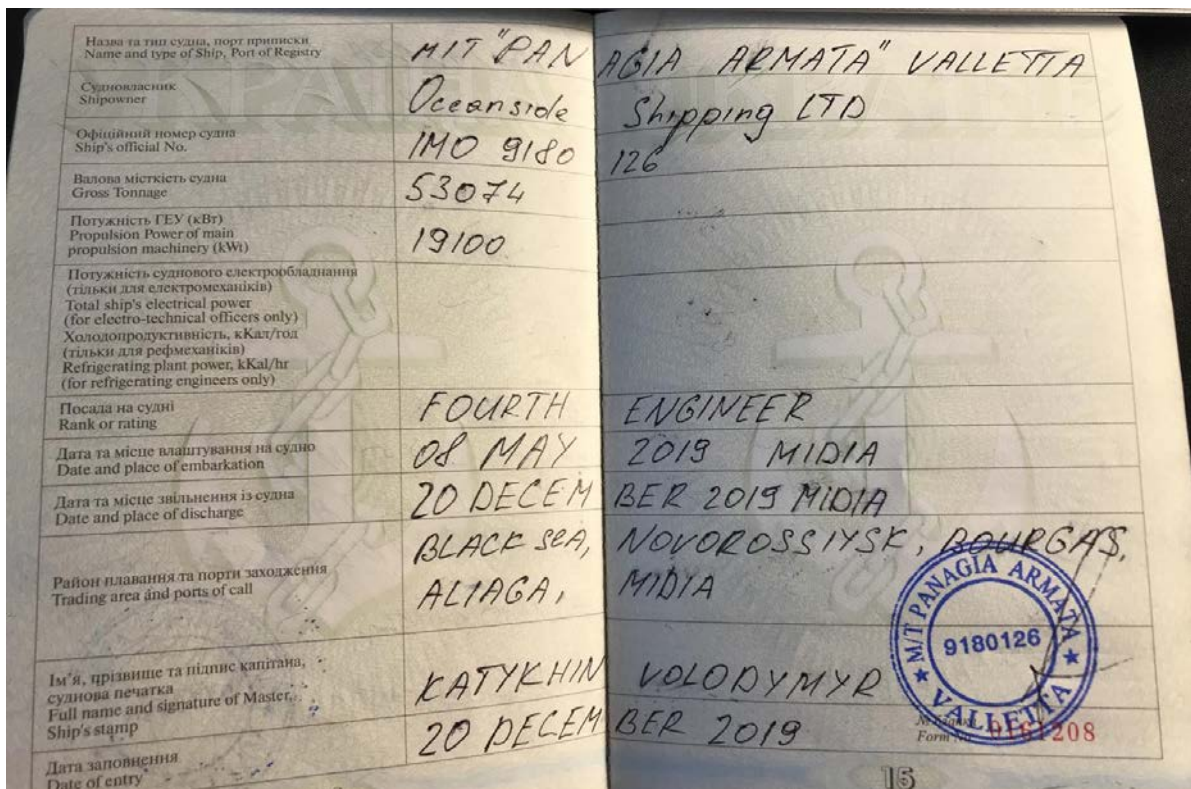 Назва та тип судна, порт приписки
Name and type of Ship, Port of Registry
M/T "PANAGIA ARMATA" VALLETTA
Судновласник
Shipowner
Oceanside Shipping LTD
Офіційний номер судна
Ship's official No.
IMO 9180126
Валова місткість судна
Gross Tonnage
53074
Потужність ГЕУ (кВт)
Propulsion Power of main
propulsion machinery (kWt)
19100
Потужність суднового електрообладнання
(тільки для електромеханіків)
Total ship's electrical power
(for electro-technical officers only)
Холодопродуктивність, кКал/год
(тільки для рефмеханіків)
Refrigerating plant power, kKal/hr
(for refrigerating engineers only)
Посада на судні
Rank or rating
FOURTH ENGINEER
Дата та місце влаштування на судно
Date and place of embarkation
08 MAY 2019 MIDIA
Дата та місце звільнення із судна
Date and place of discharge
20 DECEMBER 2019 MIDIA
Район плавання та порти заходження
Trading area and ports of call
BLACK SEA, NOVOROSSIYSK, BOURGAS,
ALIAGA, MIDIA
Ім'я, прізвище та підпис капітана,
суднова печатка
Full name and signature of Master,
Ship's stamp
KATYKHIN VOLODYMYR
M/T PANAGIA ARMATA
9180126
VALLETTA
Дата заповнення
Date of entry
20 DECEMBER 2019
Form
208
15